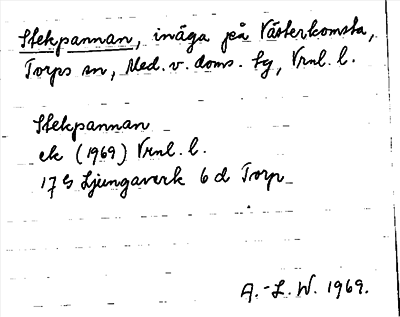 Stekpannan, inäga på Västerkomsta,
Torps sn, Med. v. doms. tg, Vrnl. l.
Stekpannan
ek (1969) Vrnl. l.
17 G Ljungaverk 6 d Torp
A.-L. W. 1969.